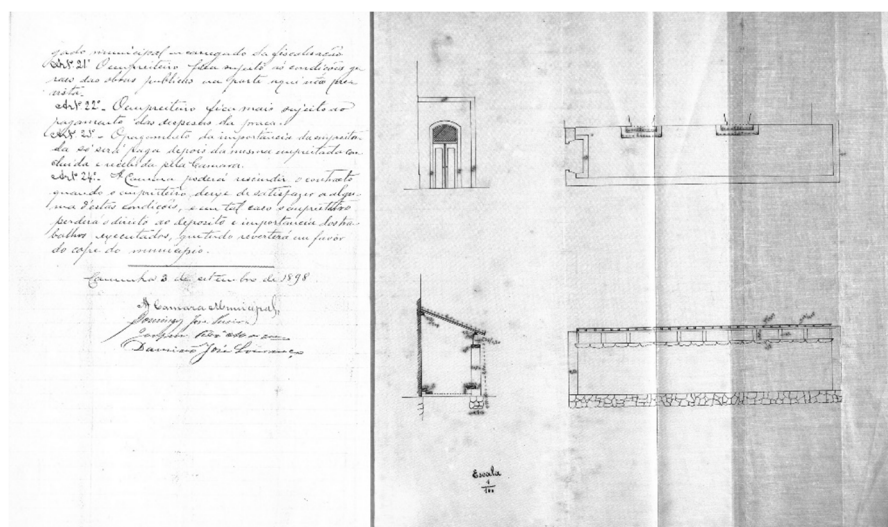 gado municipal encarregado da fiscalisação
Artº 21º O empreiteiro fica sujeito ás condições ge
raes das obras publicas na parte aqui não pre
vista.
Artº 22º- O empreiteiro fica mais sujeito ao
pagamento das despesas da praça.
Artº 23º- O pagamento da importancia da empreita
da só será paga depois da mesma empreitada con
cluida e recebida pela Camara.
Artº 24º- A Camara poderá rescindir o contracto
quando o empreiteiro, deixe de satisfazer a algu
ma d'estas condições, e em tal caso o empreiteiro
perderá o direito ao deposito e importancia dos tra
balhos executados, que tudo reverterá em favor
do cofre do municipio.
Caminha 3 de setembro de 1898
A Camara Municipal,
Domingos José
Damião José Lourenço
Escala
1
100